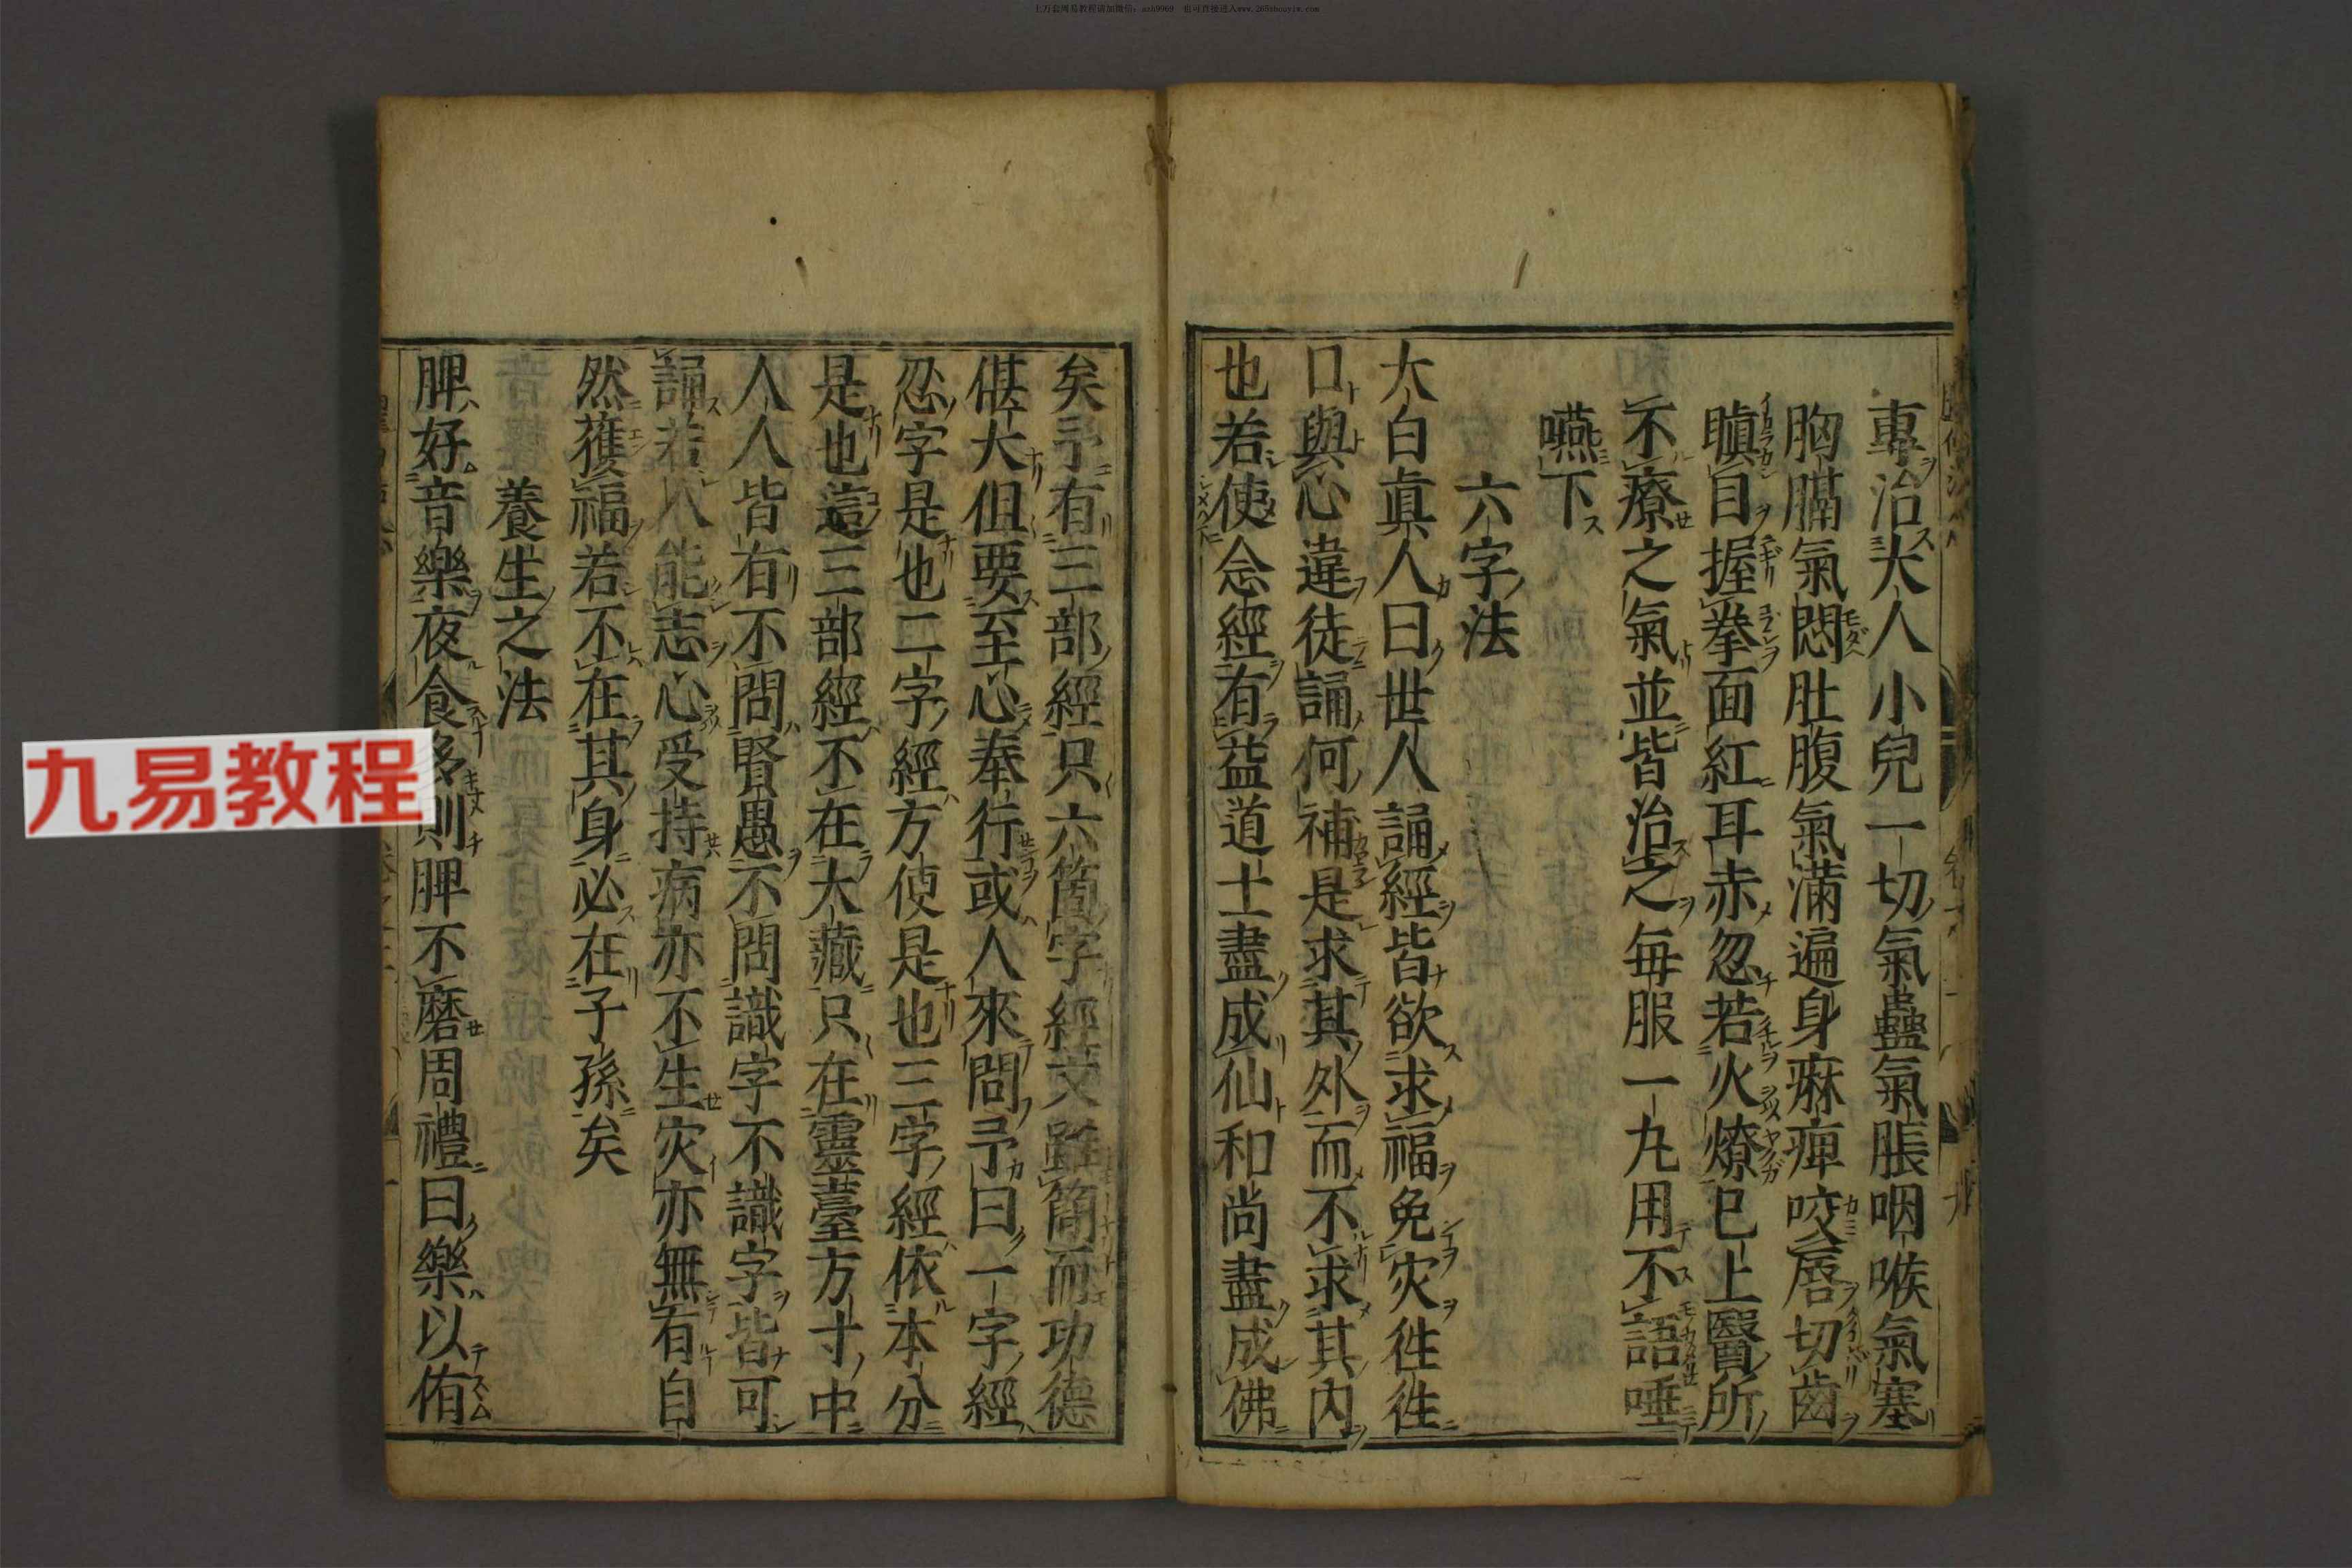 上万套周易教程请加微信：azh9969 也可直接进入www.265zhouyiw.com
專治大人小兒一切氣蠱氣脹咽喉氣塞
胸膈氣悶肚腹氣滿遍身麻痺咬唇切齒
瞋目握拳面紅耳赤忽若火燎已上醫所
不療之氣並皆治之每服一九用不語唾
嚥下
六字法
大白眞人曰世人誦經皆欲求福免灾徃徃
口與心違徒誦何補是求其外而不求其内
也若使念經有益道士盡成仙和尚盡成佛
矣予有三部經只六箇字經文雖簡而功德
偡大但要至心奉行或人來問予曰一字經
忍字是也二字經方便是也三字經依本分
是也這三部經不在大藏只在靈臺方寸中
人人皆有不問賢愚不問識字不識字皆可
誦若人能志心受持病亦不生灾亦無有自
然獲福若不在其身必在子孫矣
養生之法
脾好音樂夜食多則脾不磨周禮曰樂以侑
九易教程